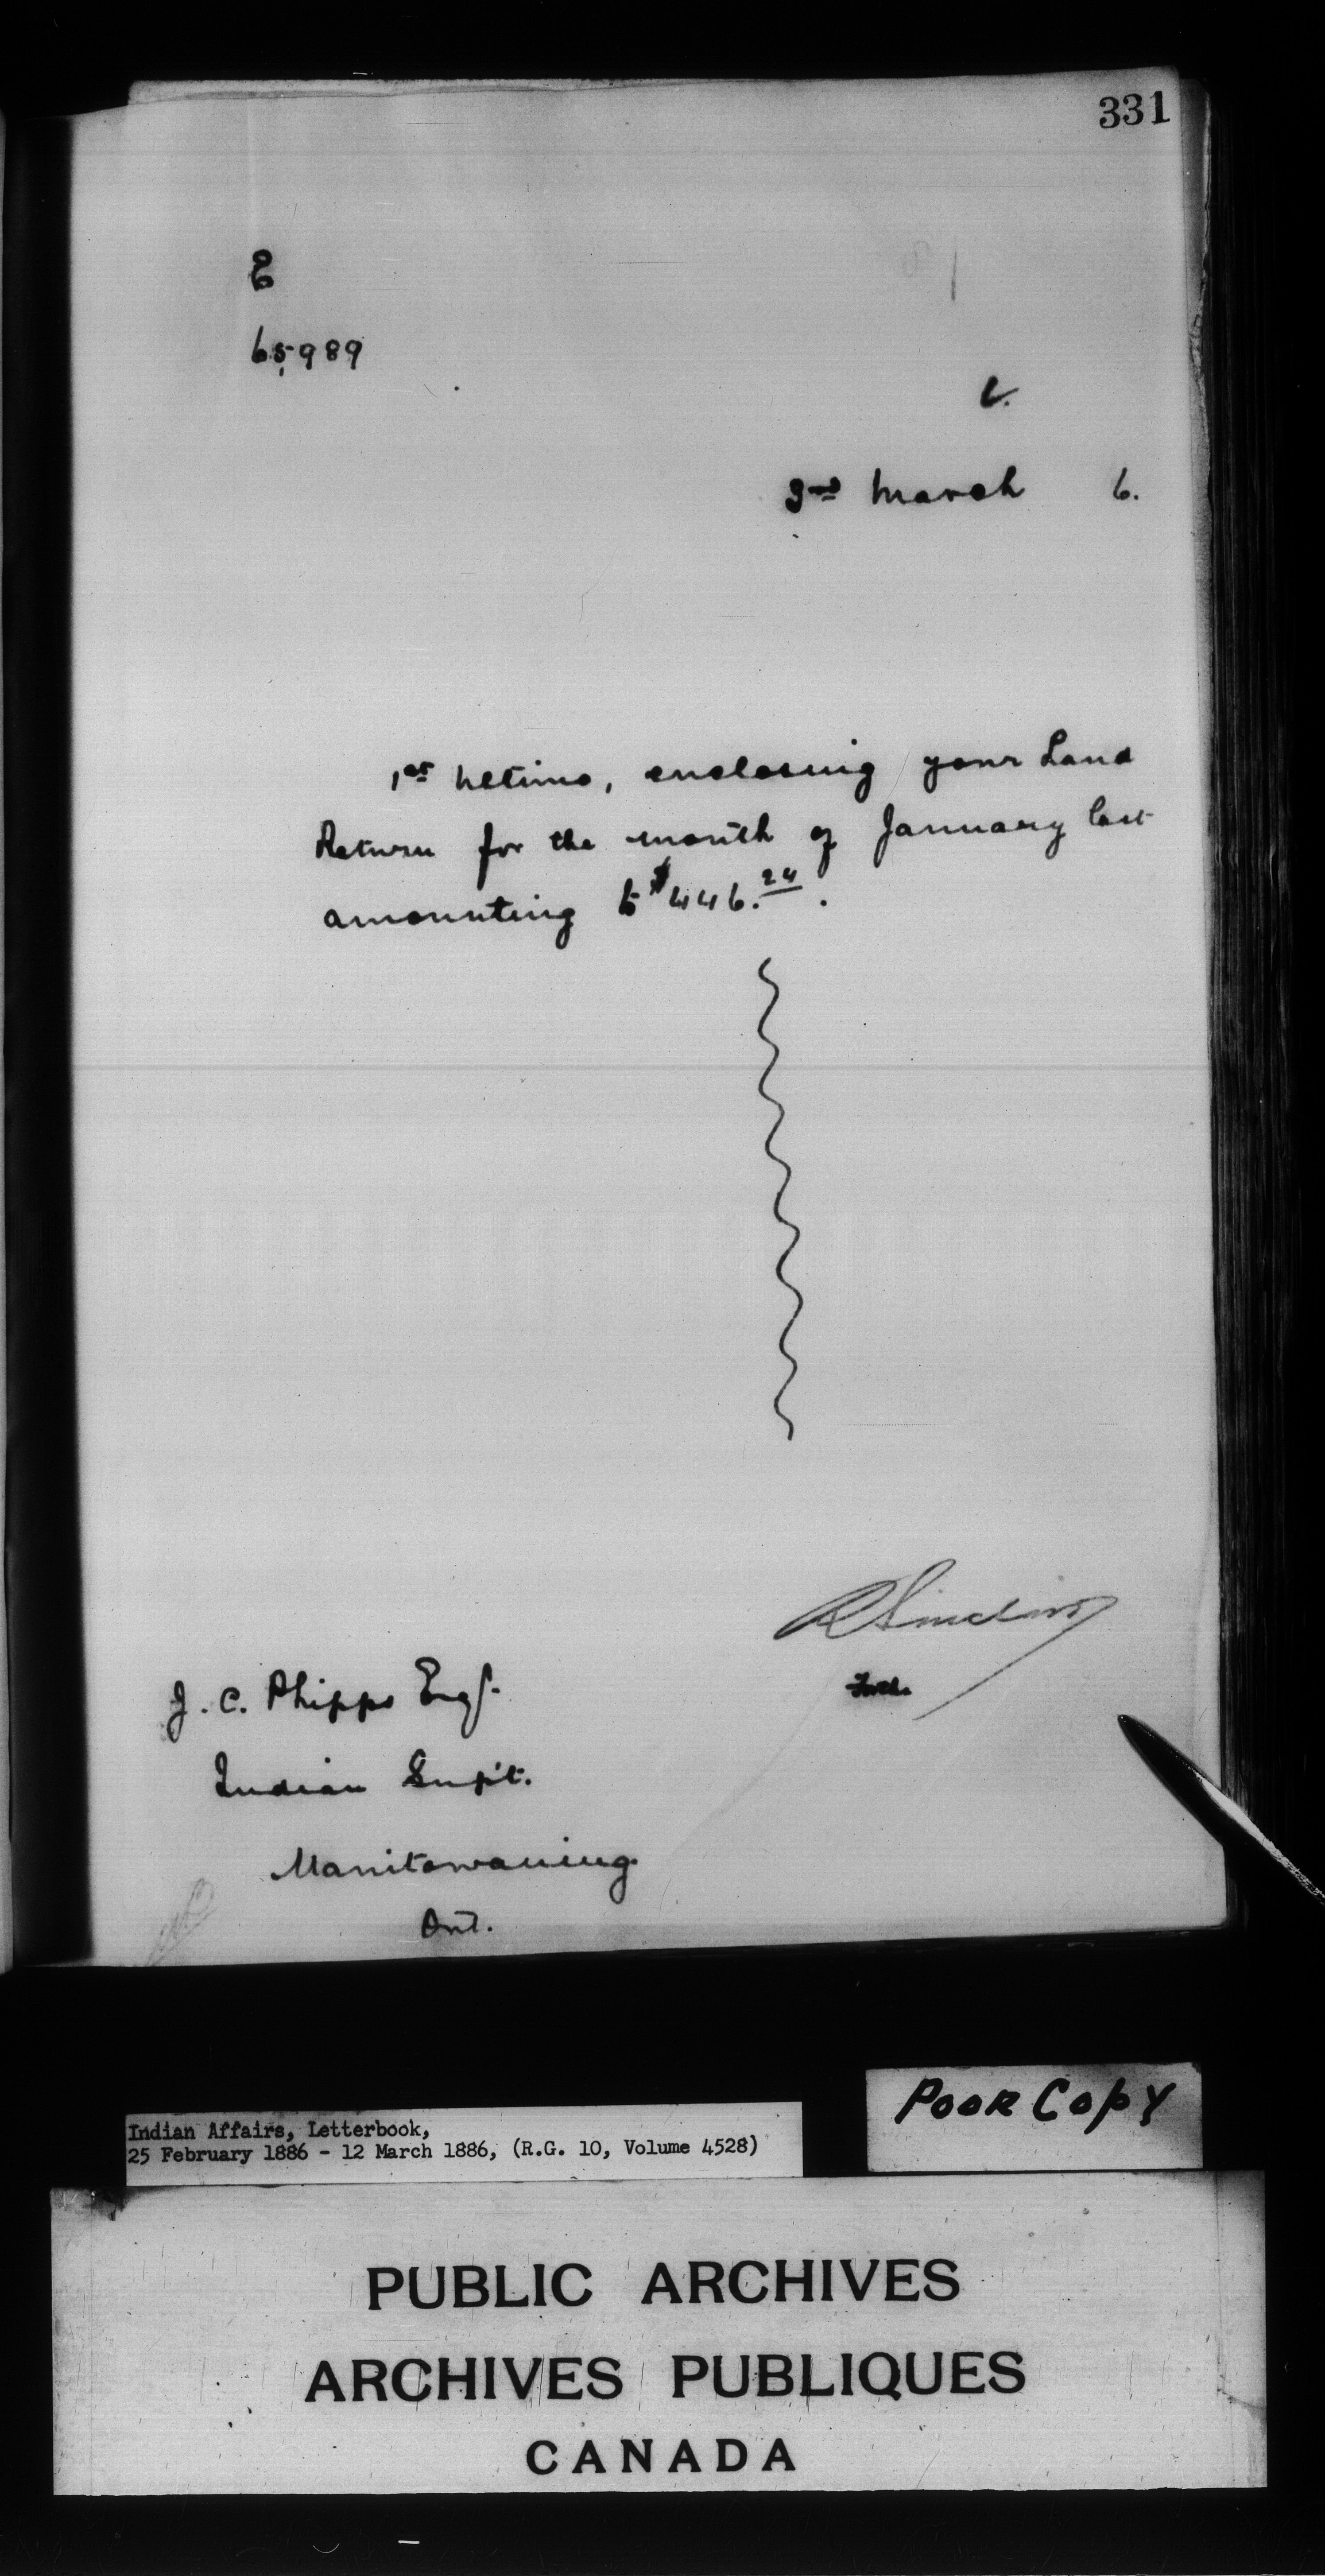 331
E
65,989
C.
3rd March 6.
1st Ultimo, enclosing your Land
Return for the month of January last
amounting to $446.24.
R Sinclair
J. C. Phipps Esq.
Indian Supt.
Manitowaning
Ont.
Indian Affairs, Letterbook,
25 February 1886 - 12 March 1886, (R.G. 10, Volume 4528)
POOR COPY
PUBLIC ARCHIVES
ARCHIVES PUBLIQUES
CANADA